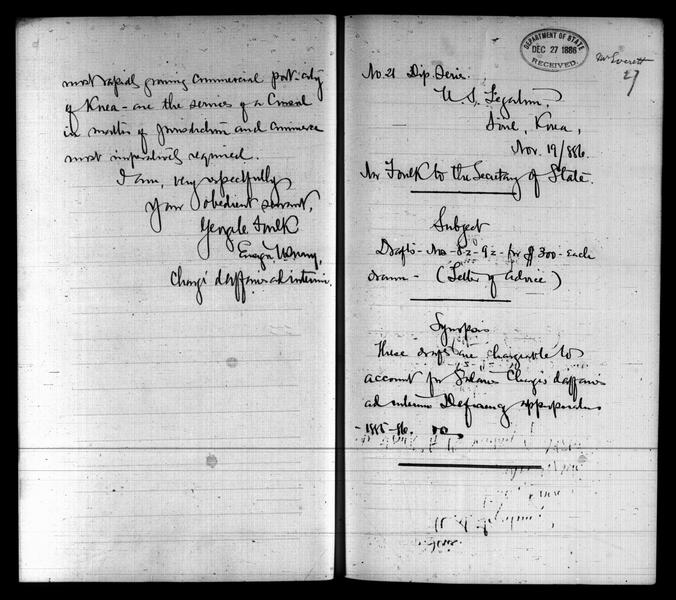 most rapidly growing commercial port city
of Korea - are the services of a Consul
in matters of Jurisdiction and commerce
most imperatively required.
I am, very respectfully
Your obedient servant,
George C. Foulk
Ensign, U.S. Navy,
Chargé d'affaires ad interim.
DEPARTMENT OF STATE
DEC 27 1886
RECEIVED.
Mr Everett
27
No. 21 Dip. Series.
U. S. Legation,
Söul, Korea,
Nov. 19/886.
Mr Foulk to the Secretary of State.
Subject
Drafts - Nos - 8-2 - 9-2 - for $300 - each
drawn - (Letter of Advice)
Synopsis
These drafts are chargeable to
account for Salaries Chargés d'affaires
ad interim Deficiency appropriation
- 1885-86.